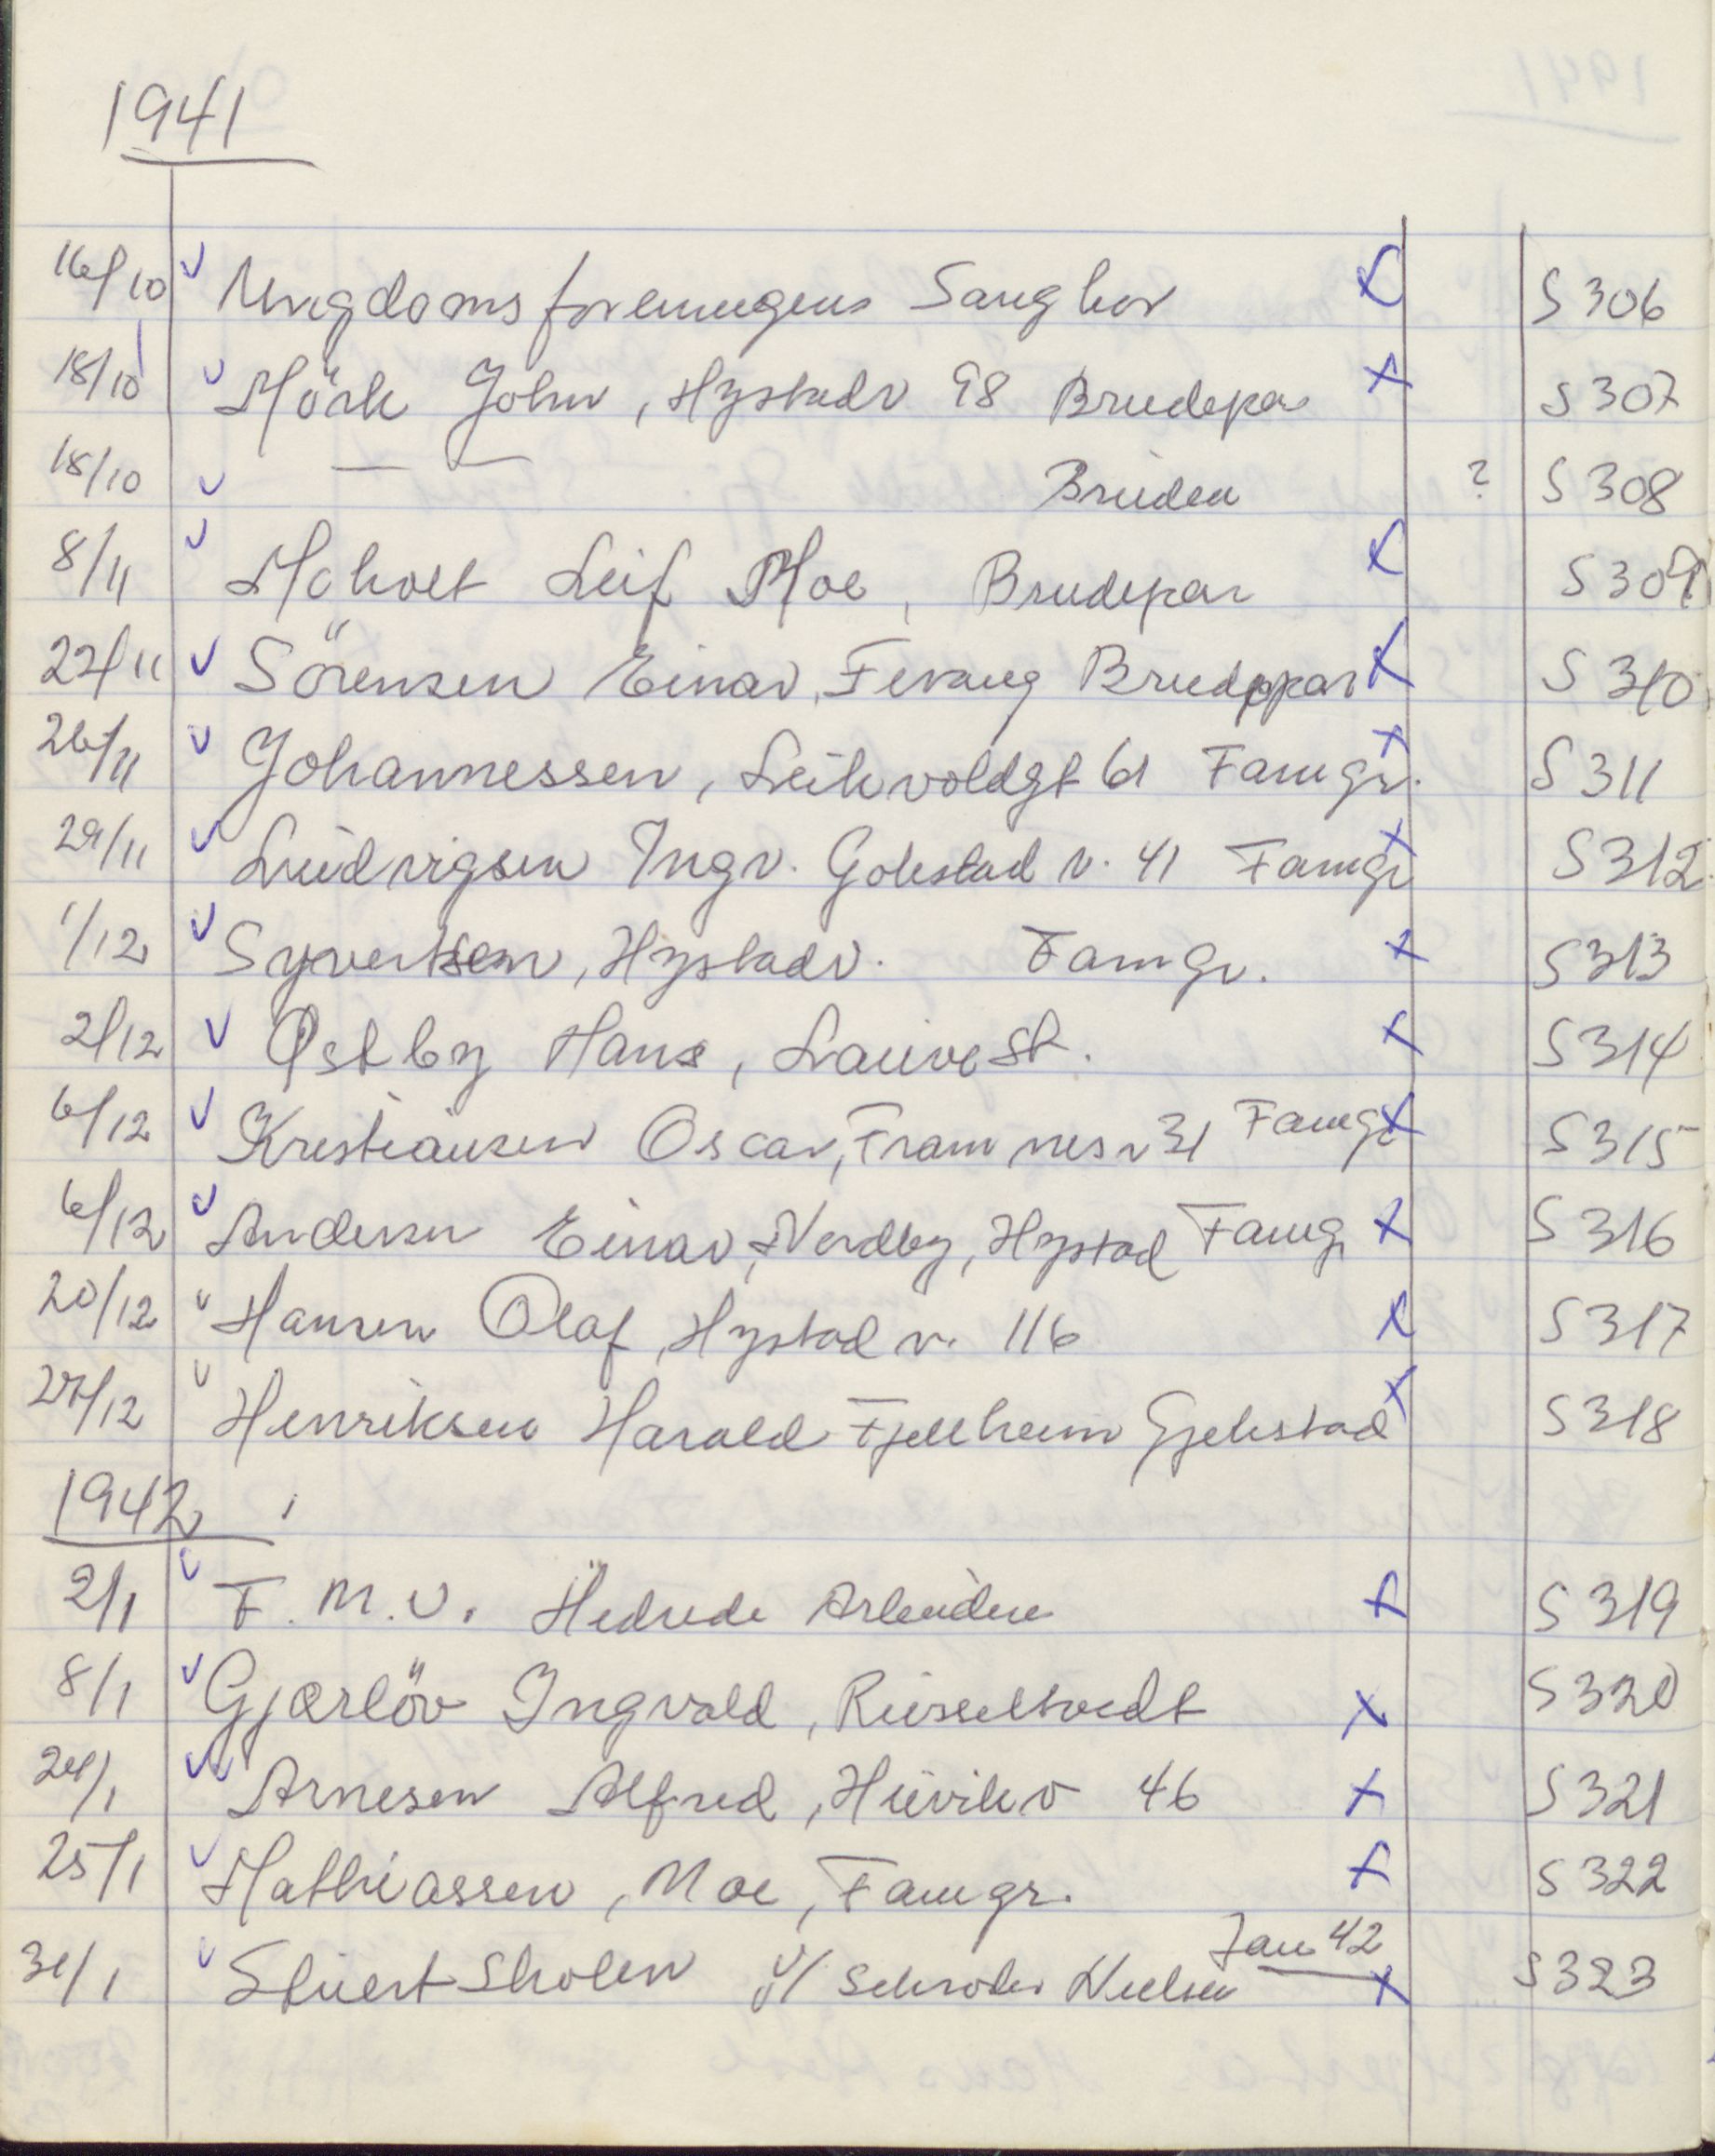 1941
16/10 v Ungdomsforeningens Sangkor x S 306
18/10 v Mörk John, Hystadv 98 Brudepar x S 307
18/10 v — — Bruden ? S 308
8/11 v Moholt Leif Moe, Brudepar x S 309
22/11 v Sörensen Einar, Fevang Brudepar x S 310
26/11 v Johannessen, Leikvoldgt 61 Famgr. x S 311
29/11 v Ludvigsen Ingv. Gokstad v. 41 Famgr x S 312
1/12 v Syvertsen, Hystadv. Famgr. x S 313
2/12 v Østby Hans, Lauve St. x S 314
6/12 v Kristiansen Oscar, Framnesv 31 Famgr x S 315
6/12 v Andersen Einar, Nordby, Hystad Famg x S 316
20/12 v Hansen Olaf, Hystad v. 116 x S 317
27/12 v Henriksen Harald Fjellheim Gjekstad x S 318
1942
2/1 v F. M. V. Hedrede Arbeidere x S 319
8/1 v Gjærlöv Ingvald, x S 320
24/1 v Arnesen Alfred, Huvikv 46 x S 321
25/1 v Mathiassen, Moe, Famgr. x S 322
Jan 42
31/1 v v/ Schrøder Nielsen x S 323